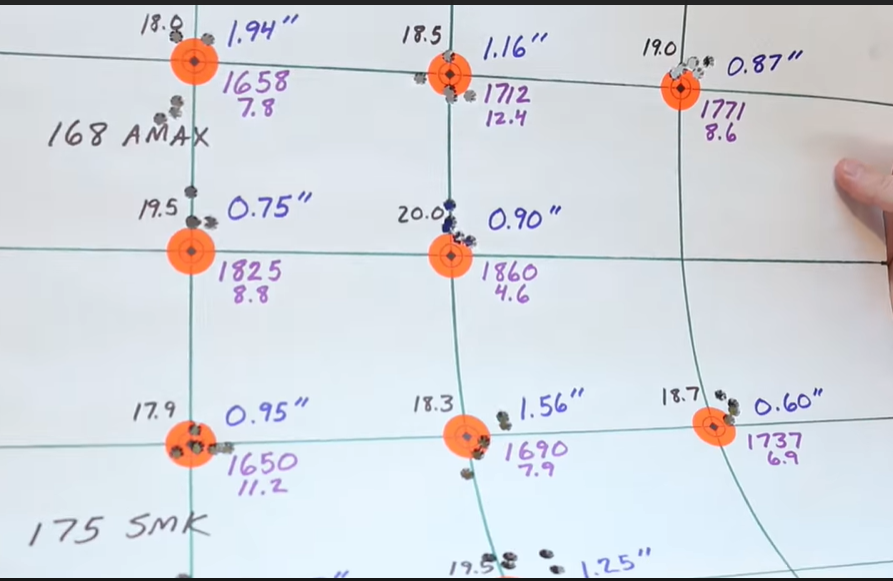 18.0 1.94"
1658
7.8
18.5 1.16"
1712
12.4
19.0 0.87"
1771
8.6
168 AMAX
19.5 0.75"
1825
8.8
20.0 0.90"
1860
4.6
17.9 0.95"
1650
11.2
18.3 1.56"
1690
7.9
18.7 0.60"
1737
6.9
175 SMK
"
19.5 1.25"